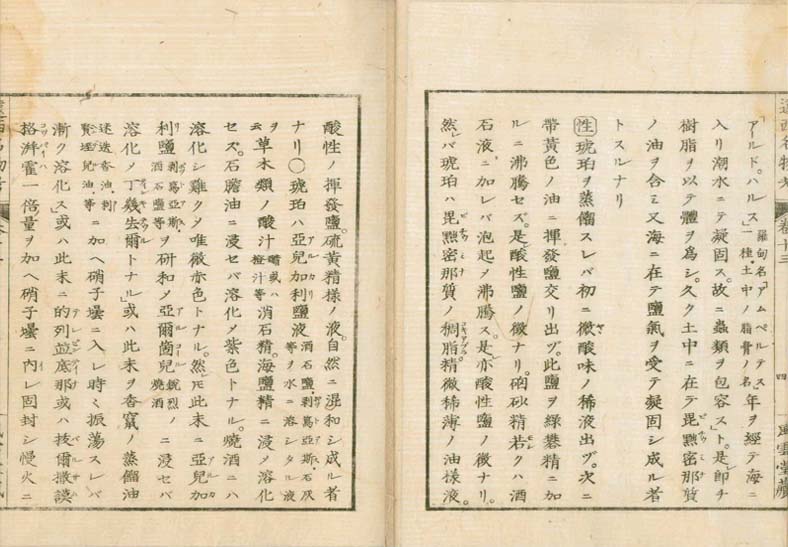 卷十三 四 風雲堂藏
「アールド、ハルス」羅甸名「アムペルテス」一種、土中ノ脂膏ノ名 年ヲ經テ海ニ
入リ潮水ニテ凝固ス。故ニ蟲類ヲ包容スト。是レ即チ
樹脂ヲ以テ體ヲ爲シ。久ク土中ニ在テ毘㸃密那質
ノ油ヲ含ミ又海ニ在テ鹽氣ヲ受テ凝固シ成ル者
トスルナリ
性 琥珀ヲ蒸餾スレバ初ニ微酸味ノ稀液出ヅ。次ニ
帶黃色ノ油ニ揮發鹽交リ出ヅ。此鹽ヲ綠礬精ニ加
ルニ沸騰セズ。是レ酸性鹽ノ徴ナリ。硇砂精若クハ酒
石液ニ加レバ泡起メ沸騰ス。是レ亦酸性鹽ノ徴ナリ。
然レバ琥珀ハ毘㸃密那質ノ稠脂精微稀薄ノ油樣液。
酸性ノ揮發鹽。硫黃精樣ノ液。自然ニ混和シ成ル者
ナリ〇琥珀ハ亞兒加利鹽液 酒石鹽・剥篤亞斯・石灰等ヲ水ニ溶シタル液
ヲ云 草木類ノ酸汁 醋或ハ橙汁等 消石精。海鹽精ニ浸メ溶化
セズ。石膽油ニ浸セバ溶化メ紫色トナル。燒酒ニハ
溶化シ難クメ唯微赤色トナル。然レモ此末ニ亞兒加
利鹽 剥篤亞斯・酒石鹽等 ヲ研和メ亞爾箇兒 銳烈ノ燒酒 ニ浸セバ
溶化メ丁幾去爾トナル」或ハ此末ヲ香竄ノ蒸餾油
迷迭香油。油。等 ニ加ヘ硝子壜ニ入レ時々振蕩スレバ
漸ク溶化ス」或ハ此末ニ的列並底那或ハ拔爾撒謨
掊湃霍一倍量ヲ加ヘ硝子壜ニ内レ固封シ慢火ニ